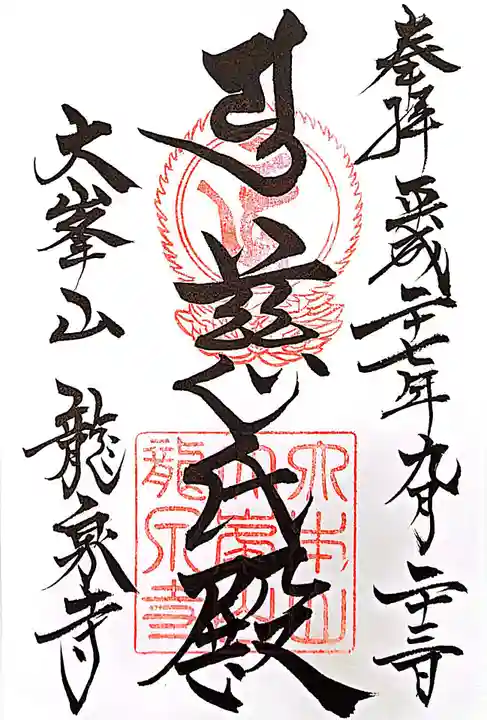 奉拝 平成二十七年九月二十三日
慈氏殿
大峯山 龍泉寺
大本山
大峯山
龍泉寺